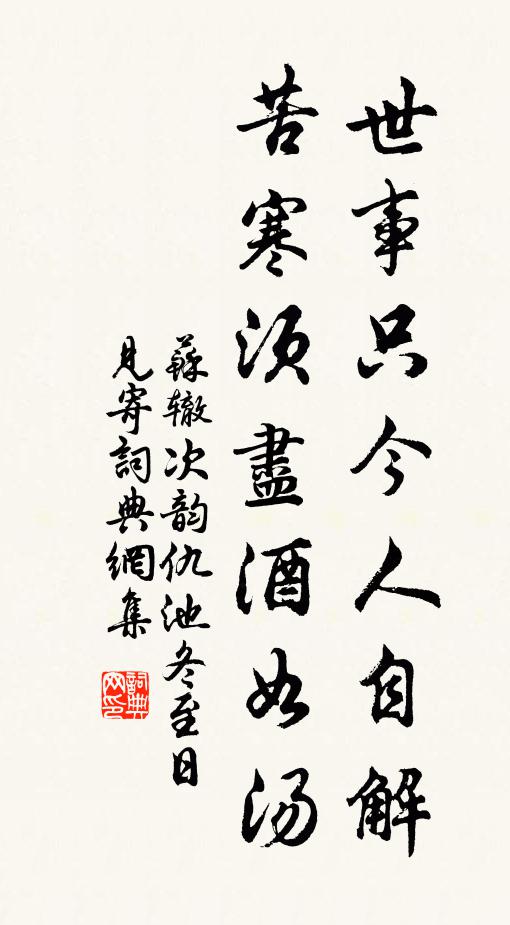 世事只今人自解
苦寒須盡酒如湯
蘇辙次韵仇池冬至日
見寄詞典網集
詞典
网印